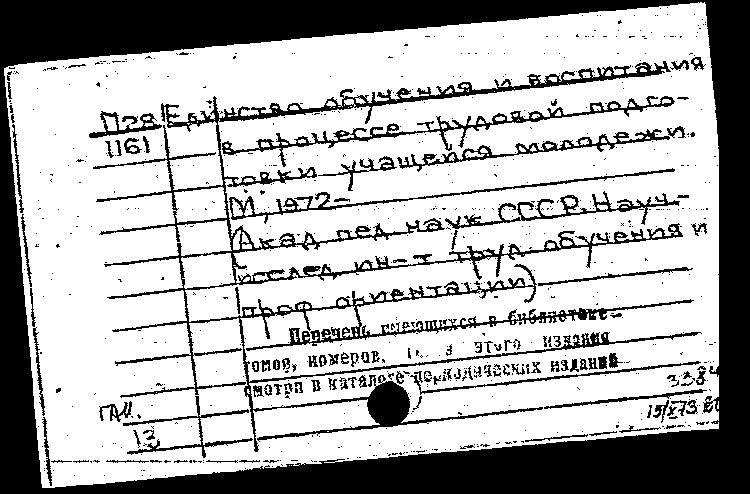 П28 Единство обучения и воспитания
1161 в процессе трудовой подго-
товки учащейся молодежи.
М., 1972-
(Акад пед наук СССР. Науч.-
исслед ин-т труд обучения и
проф ориентации)
Перечень имеющихся в библиотеке
томов, номеров, этого издания
смотри в каталоге периодических изданий
3384
ГАП.
13